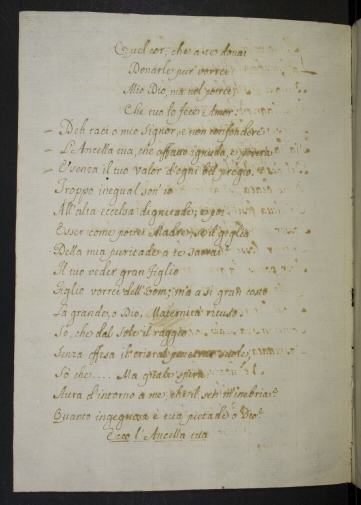 Quel cor, che a te donai
Donarle pur vorrei
Mio Dio, ma nol potrei
Che tuo lo fece Amor.
Deh taci o mio Signor, e non confondere
L'Ancella tua, che affatto ignuda, e povera
E' senza il tuo valor d'ogni bel pregio.
Troppo inegual son' io
All' alta eccelsa dignitade, e poi
Esser come potrei Madre, se il giglio
Della mia puritade a te sacrai
Il tuo veder gran figlio
Figlio vorrei dell' Uom; ma a sì gran costo
La grande, o Dio, Maternità ricuso.
Sò, che dal Sole il raggio
Senza offesa il cristal penetrar suole,
Sò che.... Ma quale spira
Aura d'intorno a me, che il sen m'inebria?
Quanto ingegnosa è tua pietade o Dio?
Ecco l'Ancella tua